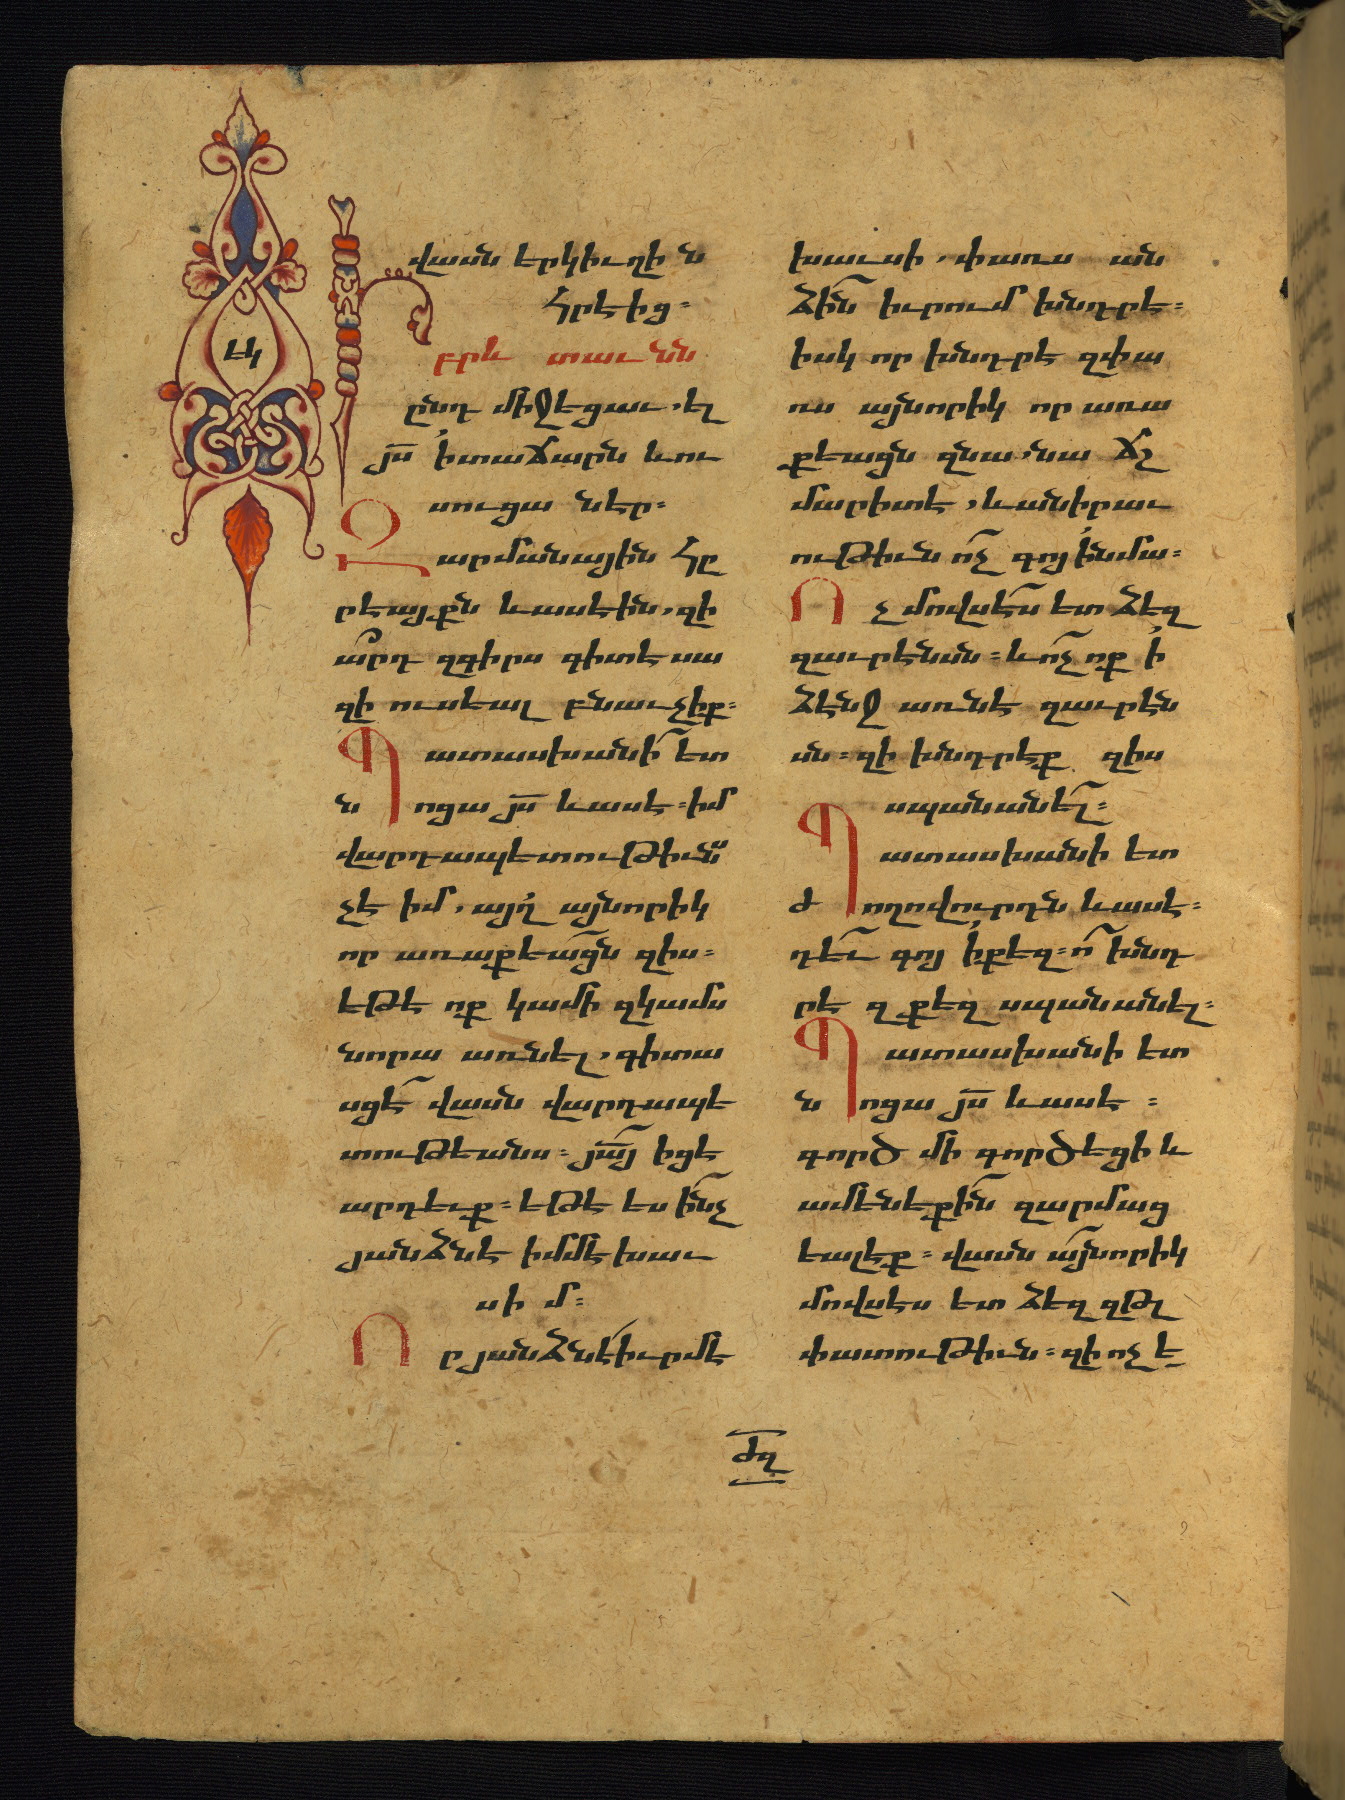 էկ
վասն երկիւղին
Հրէից։
Իբրև տաւնն
ընդ միջեցաւ, ել
յս ի տաճարն և ու
սուցանէր։
Զարմանային Հր
րեայքն և ասեին, զի
արդ զգիրս գիտէ սա
զի ուսեալ բնաւ չիք։
Պատասխանի ետ
նոցա յս և ասէ։ իմ
վարդապետութիւնս
չէ իմ, այղ այնորիկ
որ առաքեացն զիս։
եթէ ոք կամի զկամս
նորա առնել, գիտա
սցէ վասն վարդապե
տութեանս։ յայ իցէ
արդեւք։ եթէ ես ինչ
յանձնէ իմմէ խաւ
սիմ։
Որ յանձնէ իւրմէ
խաւսի, փառս ան
ձին իւրում խնդրէ։
իսկ որ խնդրէ զփա
ռս այնորիկ որ առա
քեացն զնա, նա ճշ
մարիտ է, և անիրաւ
ութիւն ոչ գոյ ի նմա։
Ոչ մովսէս ետ ձեզ
զաւրէնսն։ և ոչ ոք ի
ձէնջ առնէ զաւրէն
սն։ զի խնդրէք զիս
սպանանել։
Պատասխանի ետ
ժողովուրդն և ասէ։
դեւ գոյ ի քեզ։ ո խնդ
րէ զքեզ սպանանել։
Պատասխանի ետ
նոցա յս և ասէ։
գործ մի գործեցի և
ամենեքին զարմաց
եալ էք։ վասն այնորիկ
մովսէս ետ ձեզ զթլ
փատութիւն։ զի ոչ է
ժզ